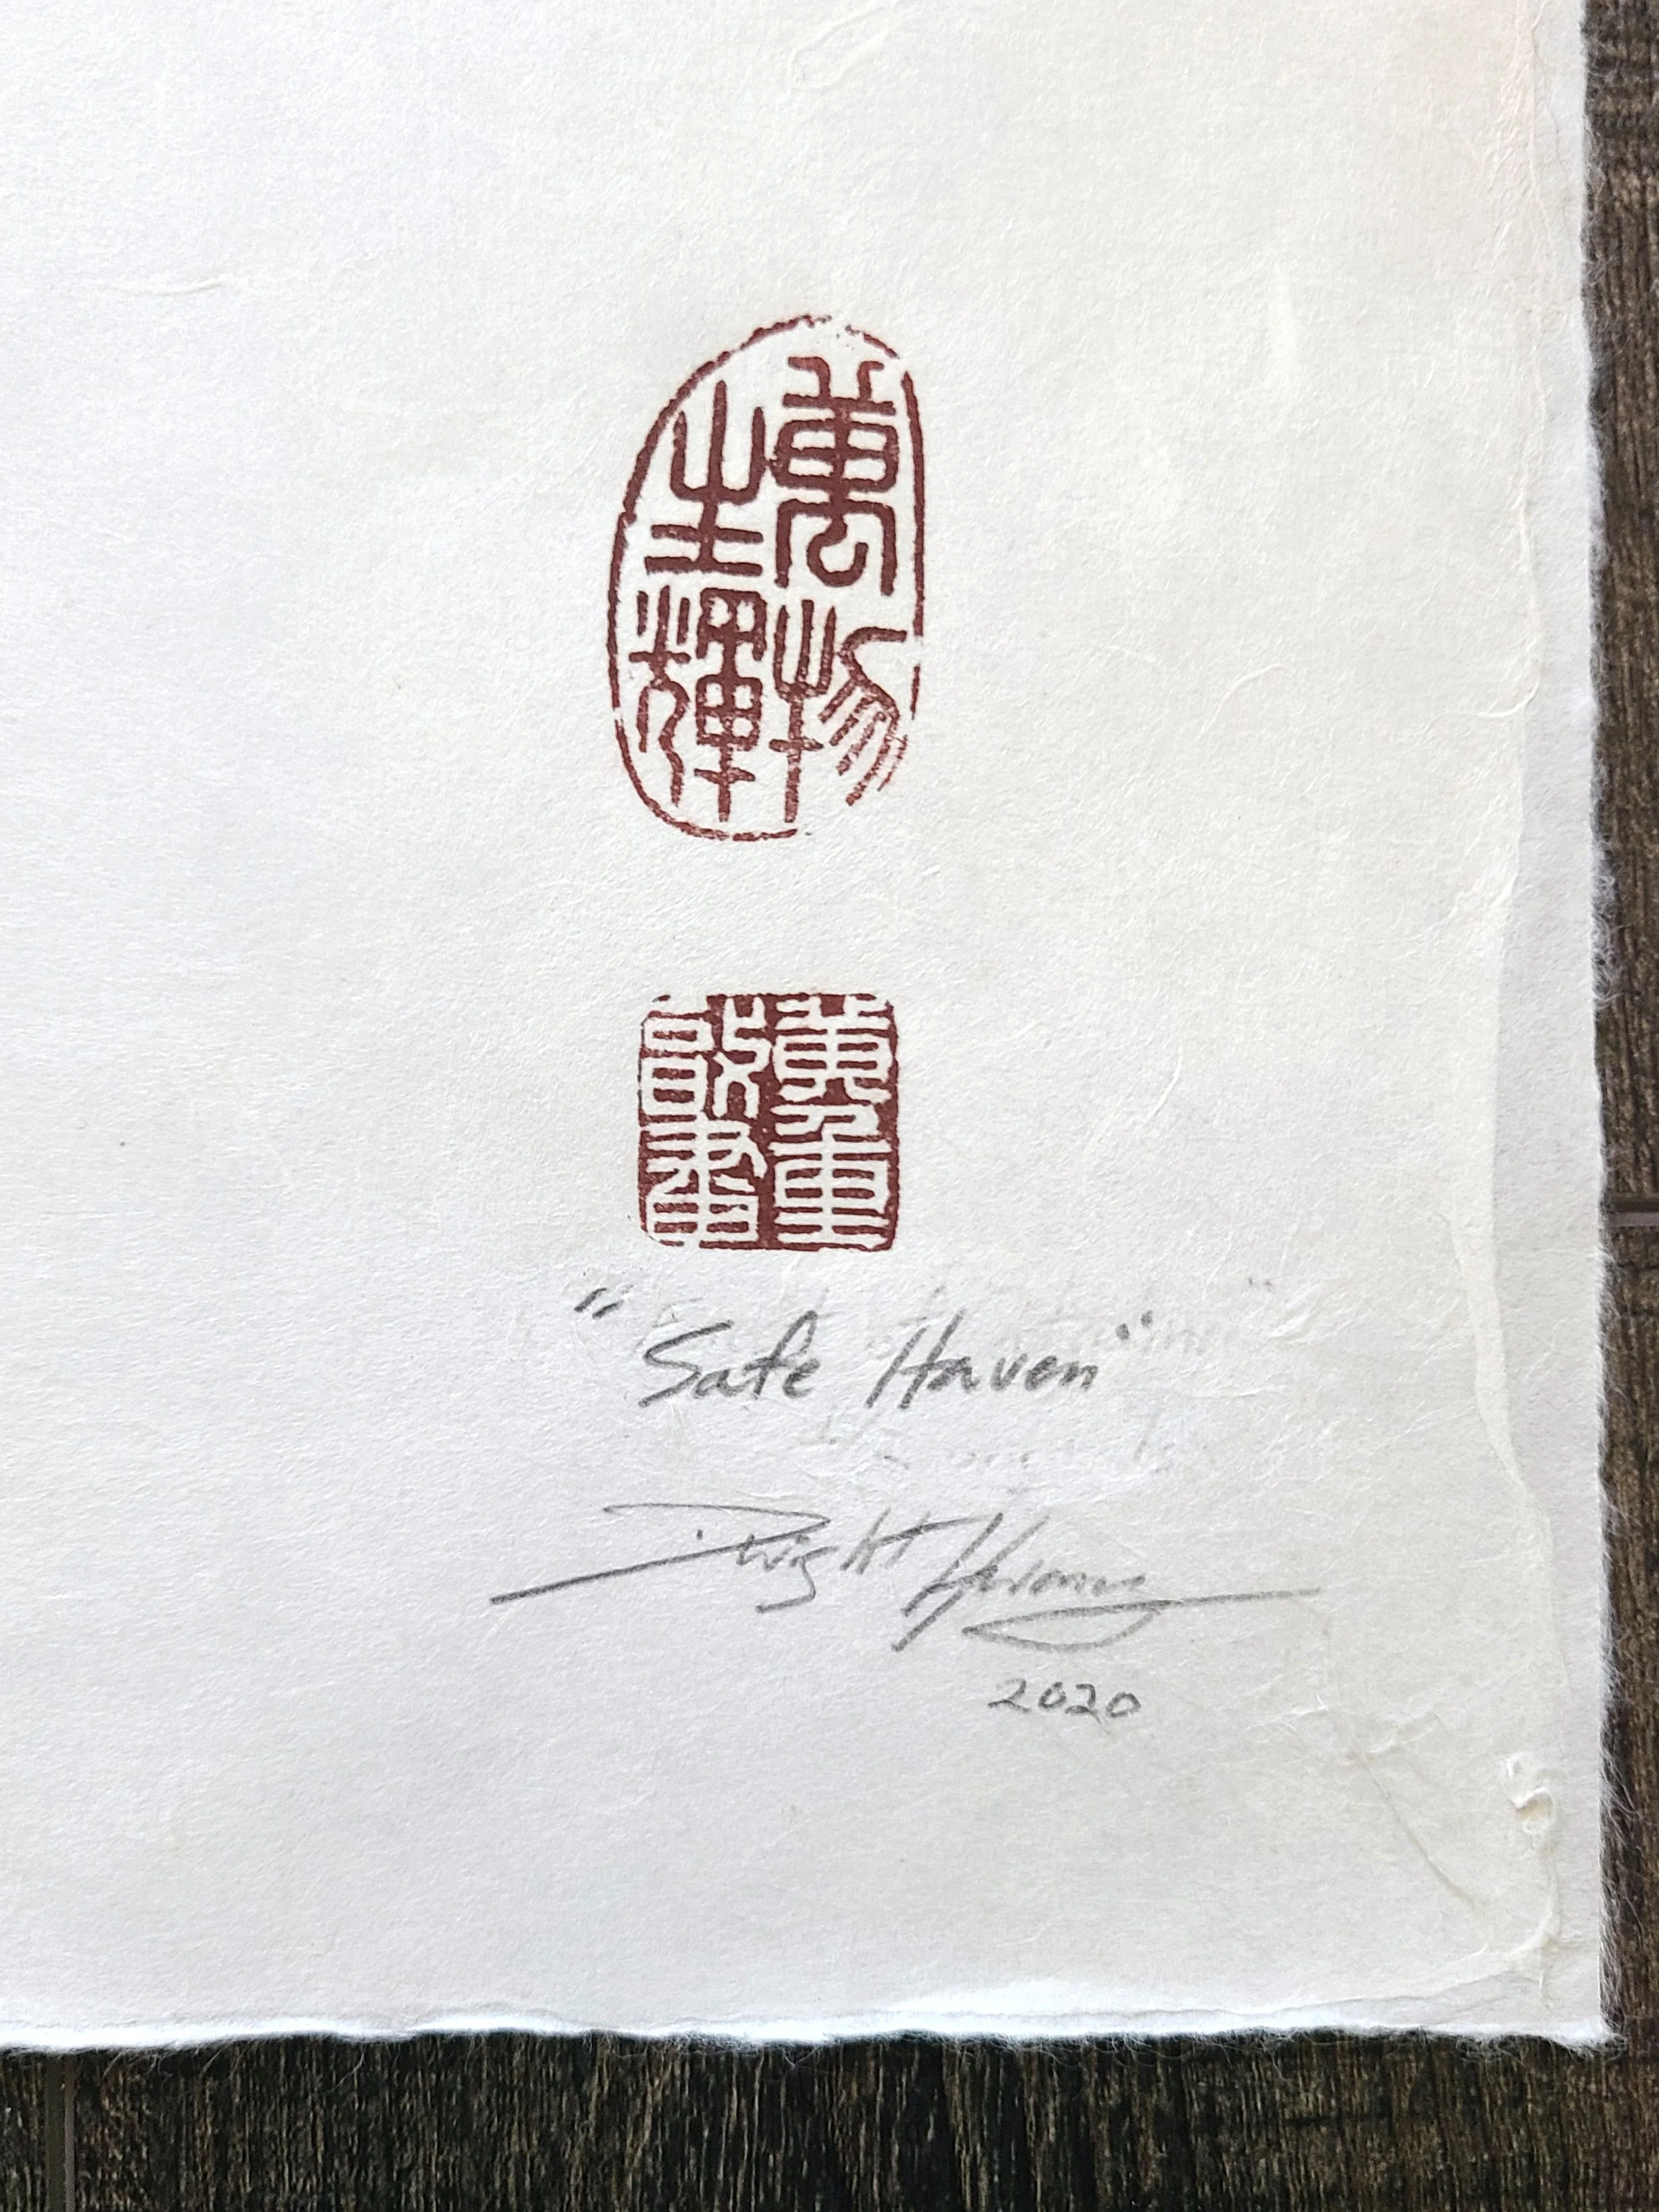 萬物
生輝
"Safe Haven"
Dwight Hwang
2020